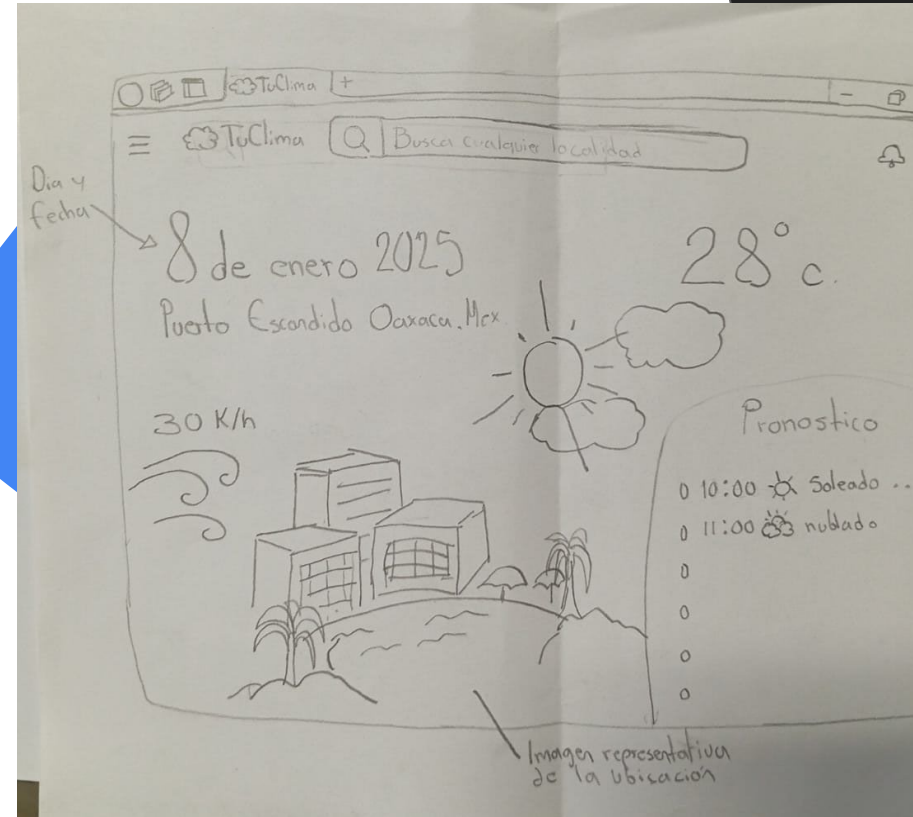 TuClima +
TuClima Busca cualquier localidad
Dia y
fecha
8 de enero 2025
28° c.
Puerto Escondido Oaxaca. Mex
30 K/h
Pronostico
10:00 Soleado ..
11:00 nublado
Imagen representativa
de la ubicación